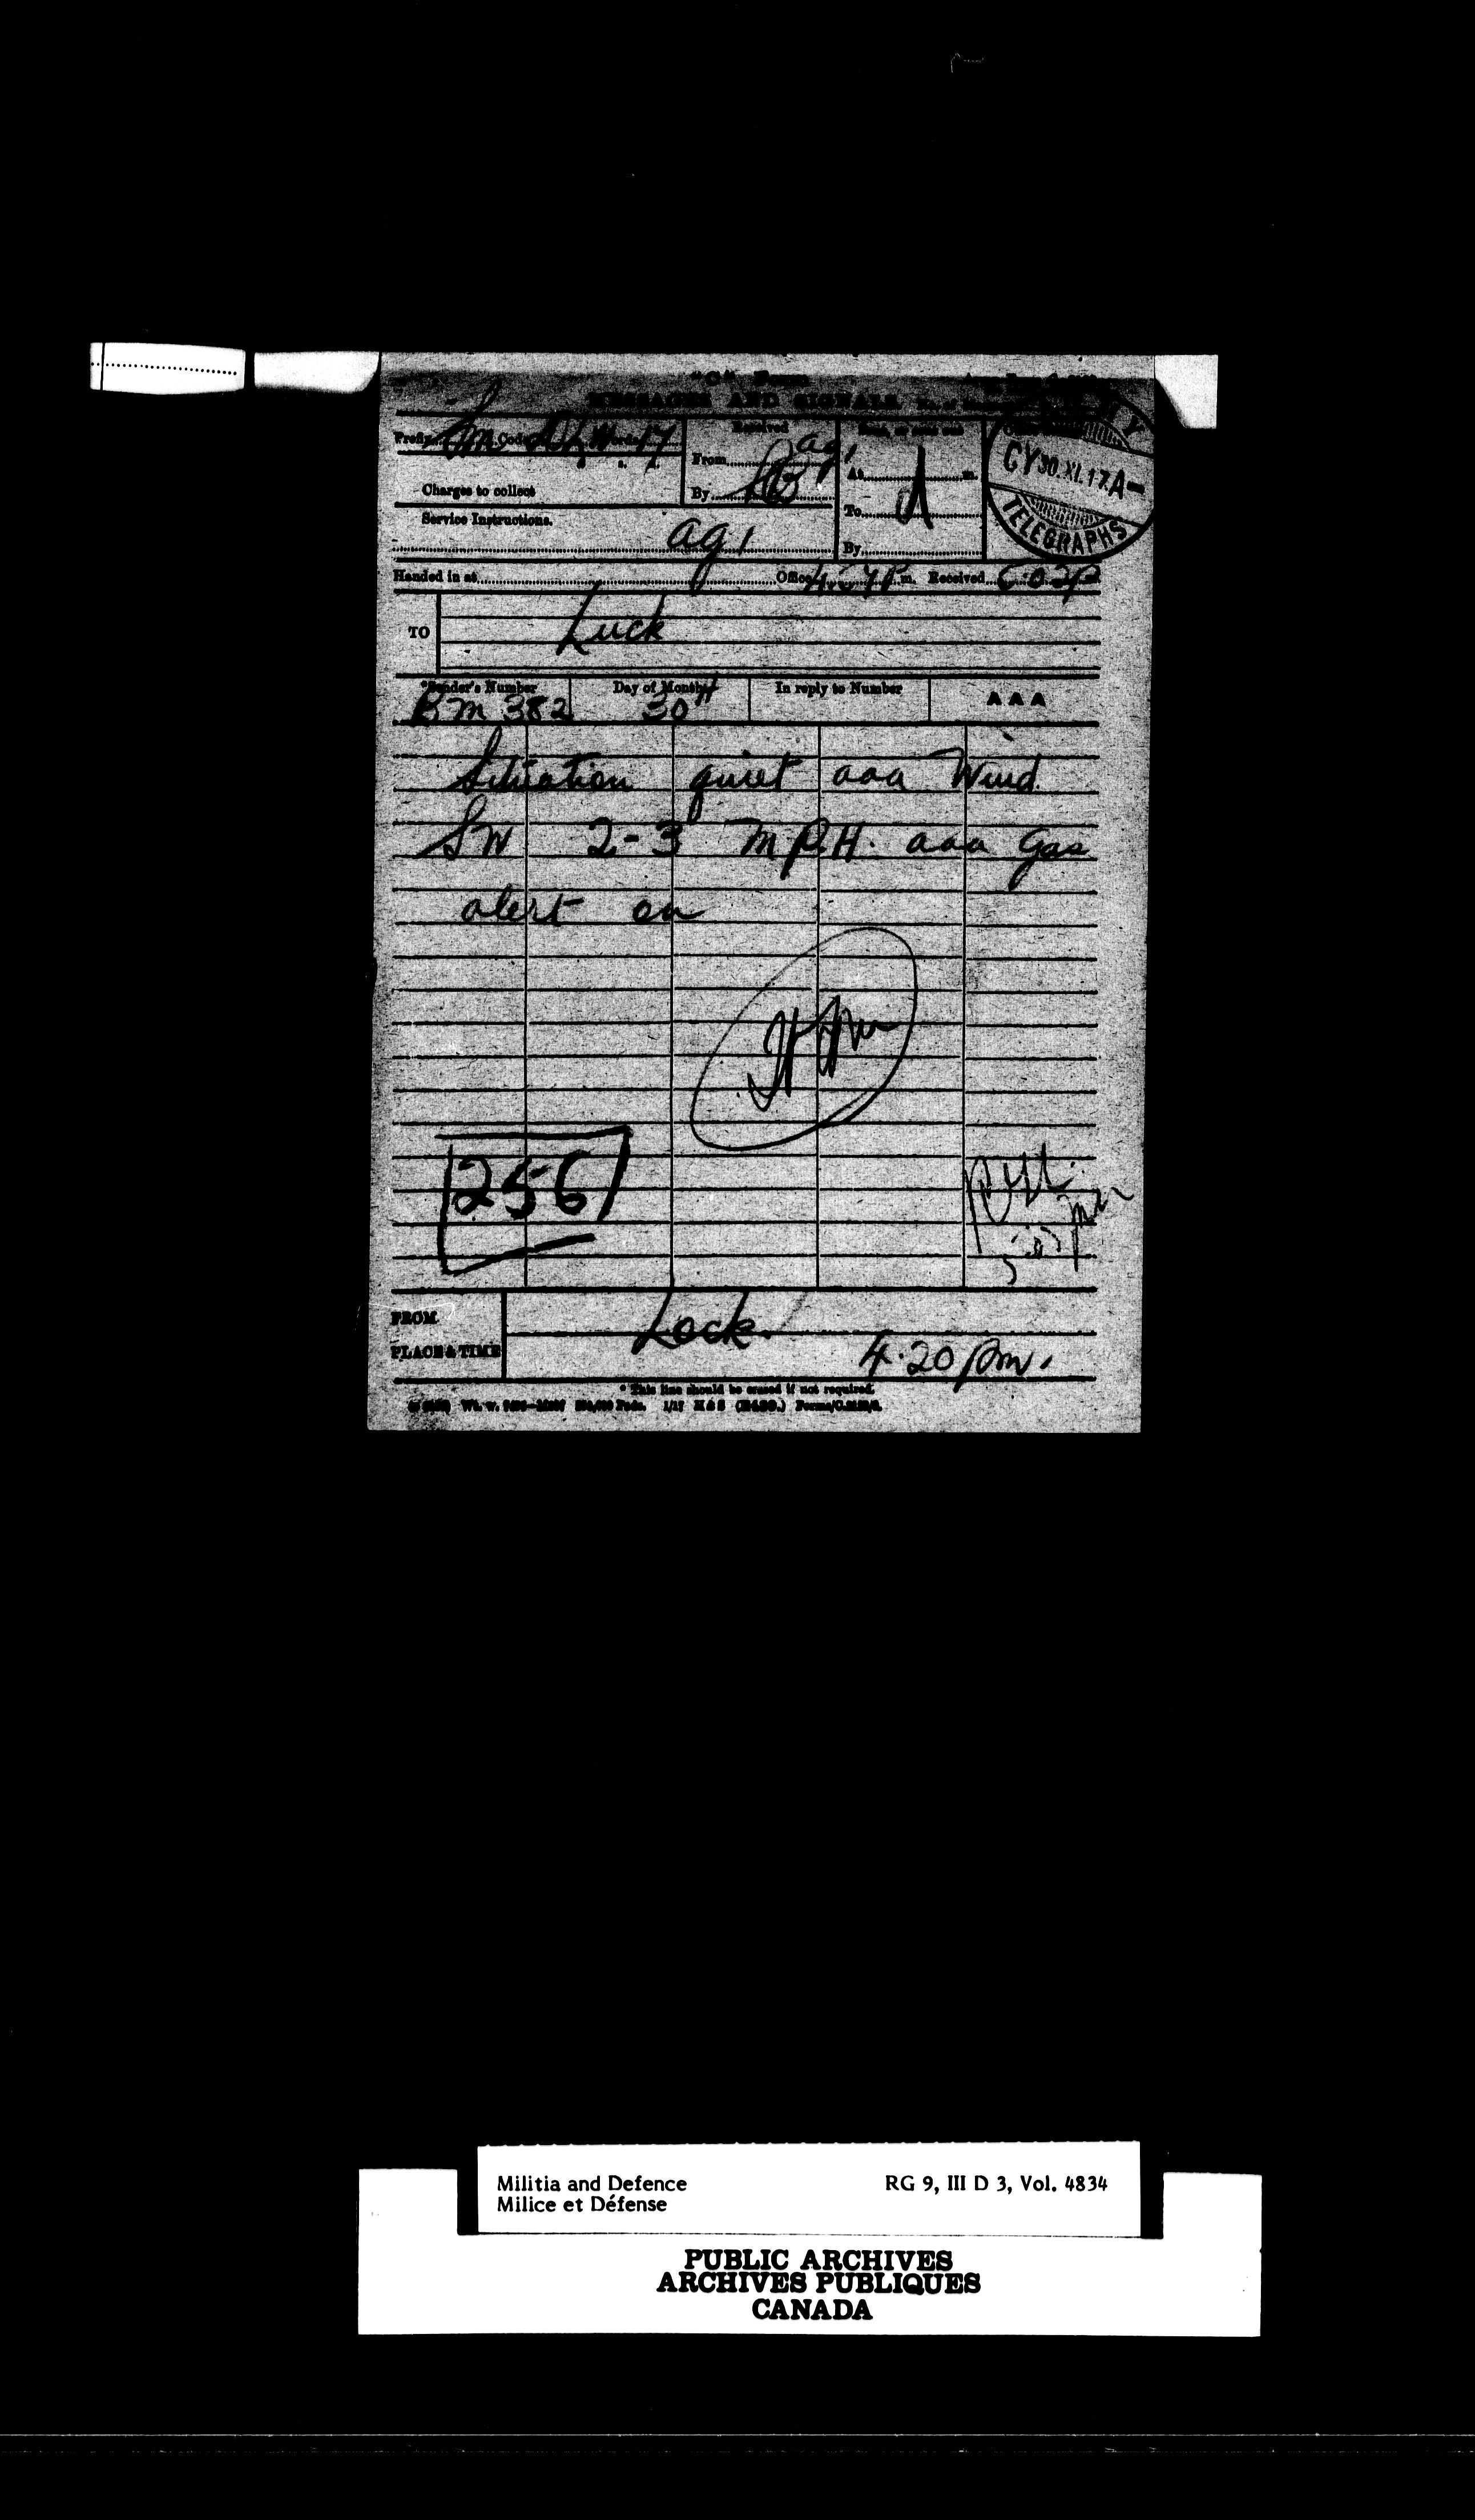 "C" Form
MESSAGES AND SIGNALS.
Prefix Sm Code Words 17
Received
From ag1
By
At m.
To
By
Charges to collect
Service Instructions.
ag1
CY 30.XI.17.A-
TELEGRAPHS
Handed in at Office p.m. Received
TO
Luck
*Sender's Number
Day of Month
In reply to Number
AAA
Bm 382
30th
Situation quiet aaa Wind
SW 2-3 M.P.H. aaa Gas
alert on
256
FROM
Lock
PLACE & TIME
4.20 pm.
* This line should be erased if not required.
Militia and Defence
Milice et Défense
RG 9, III D 3, Vol. 4834
PUBLIC ARCHIVES
ARCHIVES PUBLIQUES
CANADA